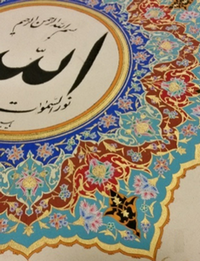 بسم الله الرحمن الرحيم
الله
نور السموات